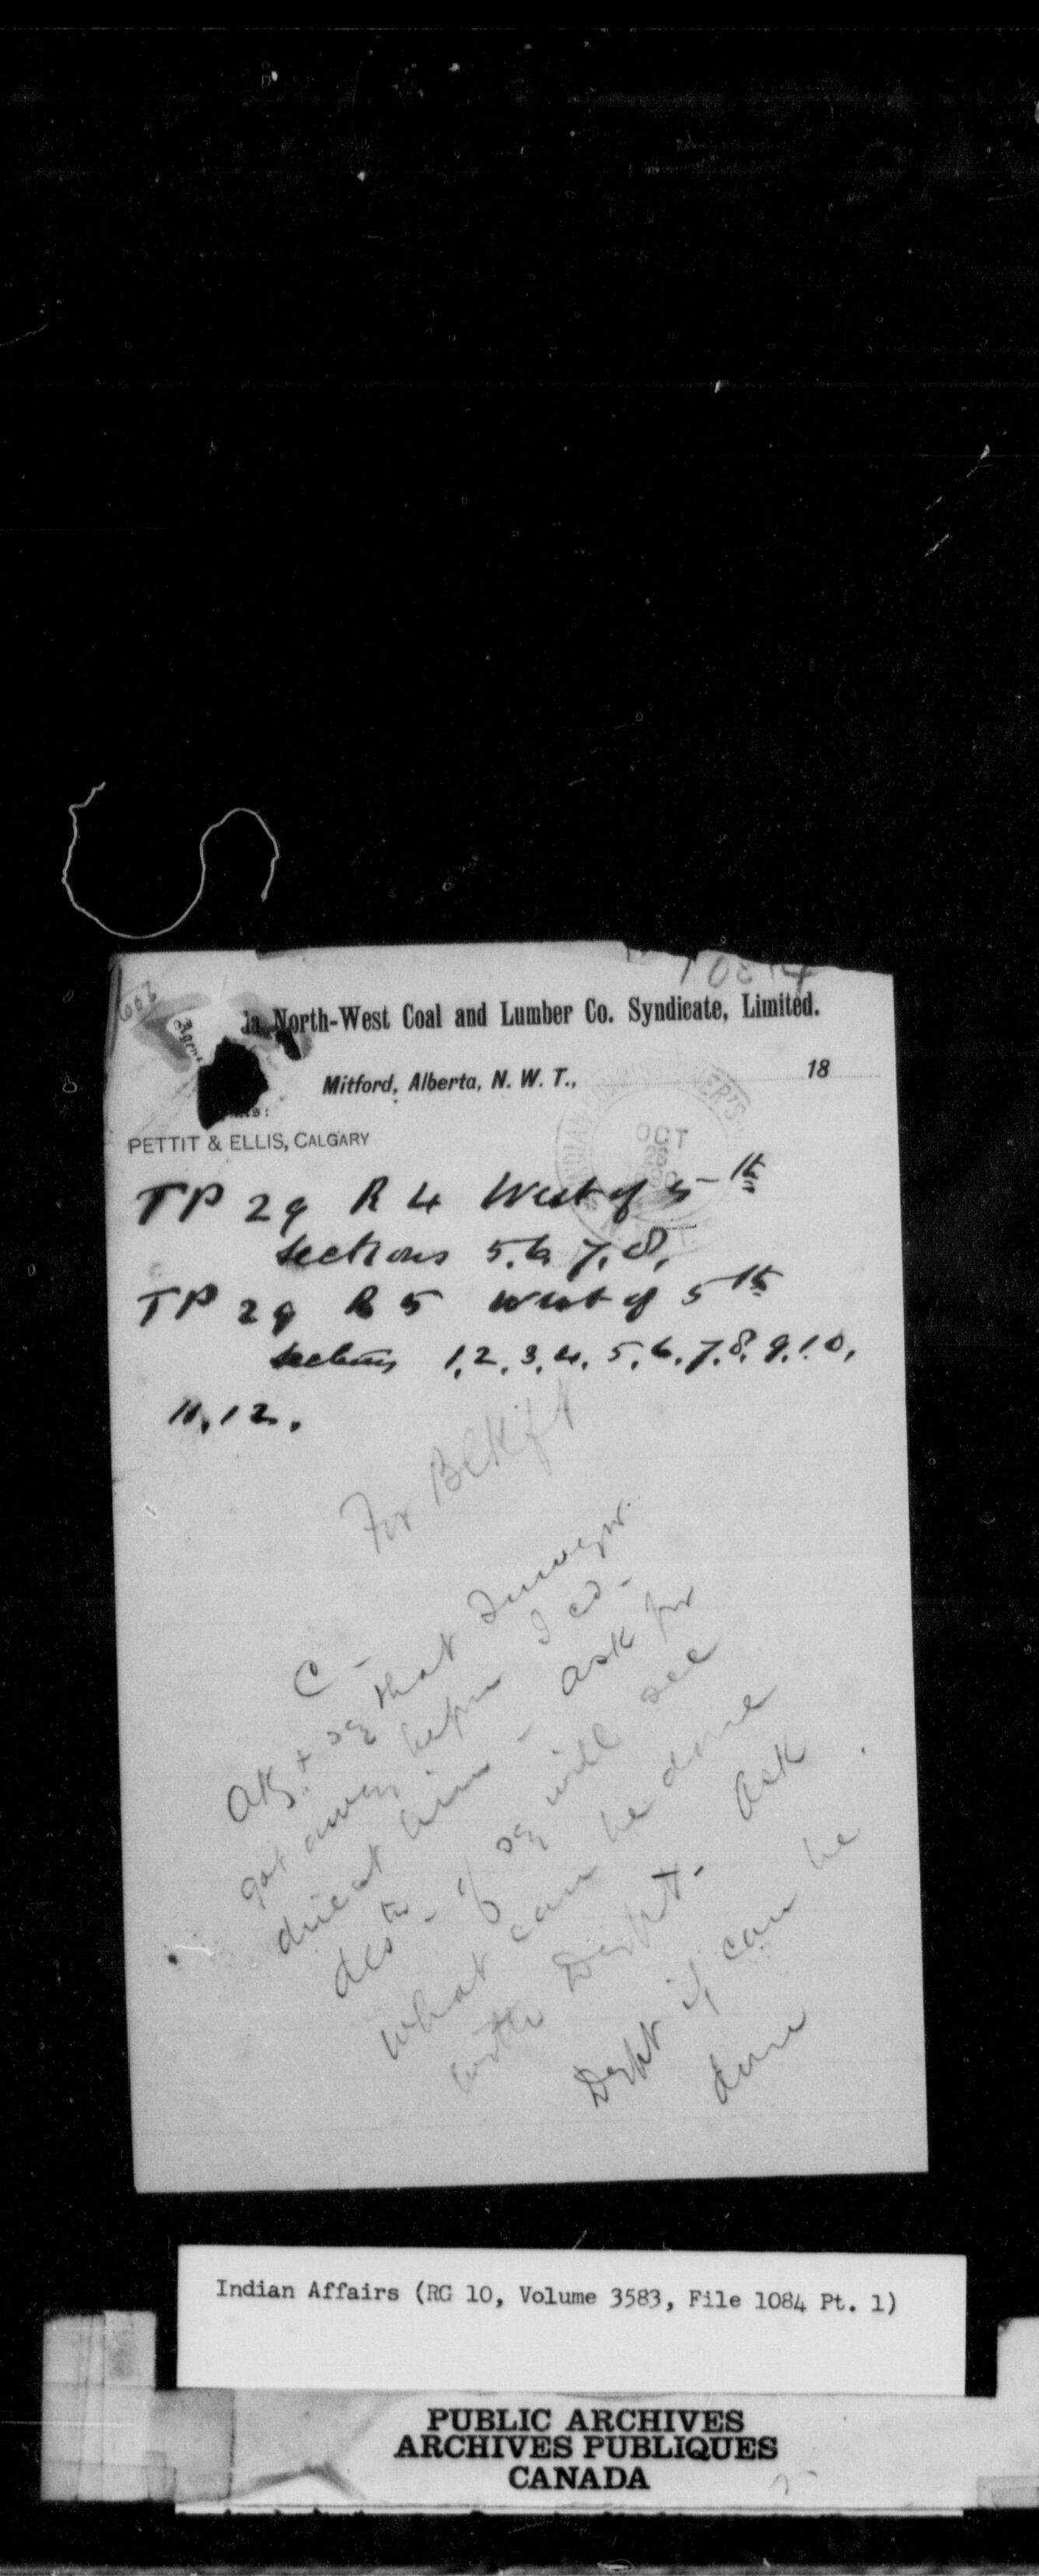 1084
North-West Coal and Lumber Co. Syndicate, Limited.
Mitford, Alberta, N. W. T., 18
PETTIT & ELLIS, CALGARY
OCT
TP 29 R 4 West of 5th
Sections 5. 6. 7. 8.
TP 29 R 5 West of 5th
Sections 1, 2, 3, 4, 5, 6, 7, 8, 9, 10,
11, 12.
For
C -
that Surveyor
got away before I cd -
direct him - ask for
will see
what can be done
with Dept - Ask
Dept if can be
done
Indian Affairs (RG 10, Volume 3583, File 1084 Pt. 1)
PUBLIC ARCHIVES
ARCHIVES PUBLIQUES
CANADA